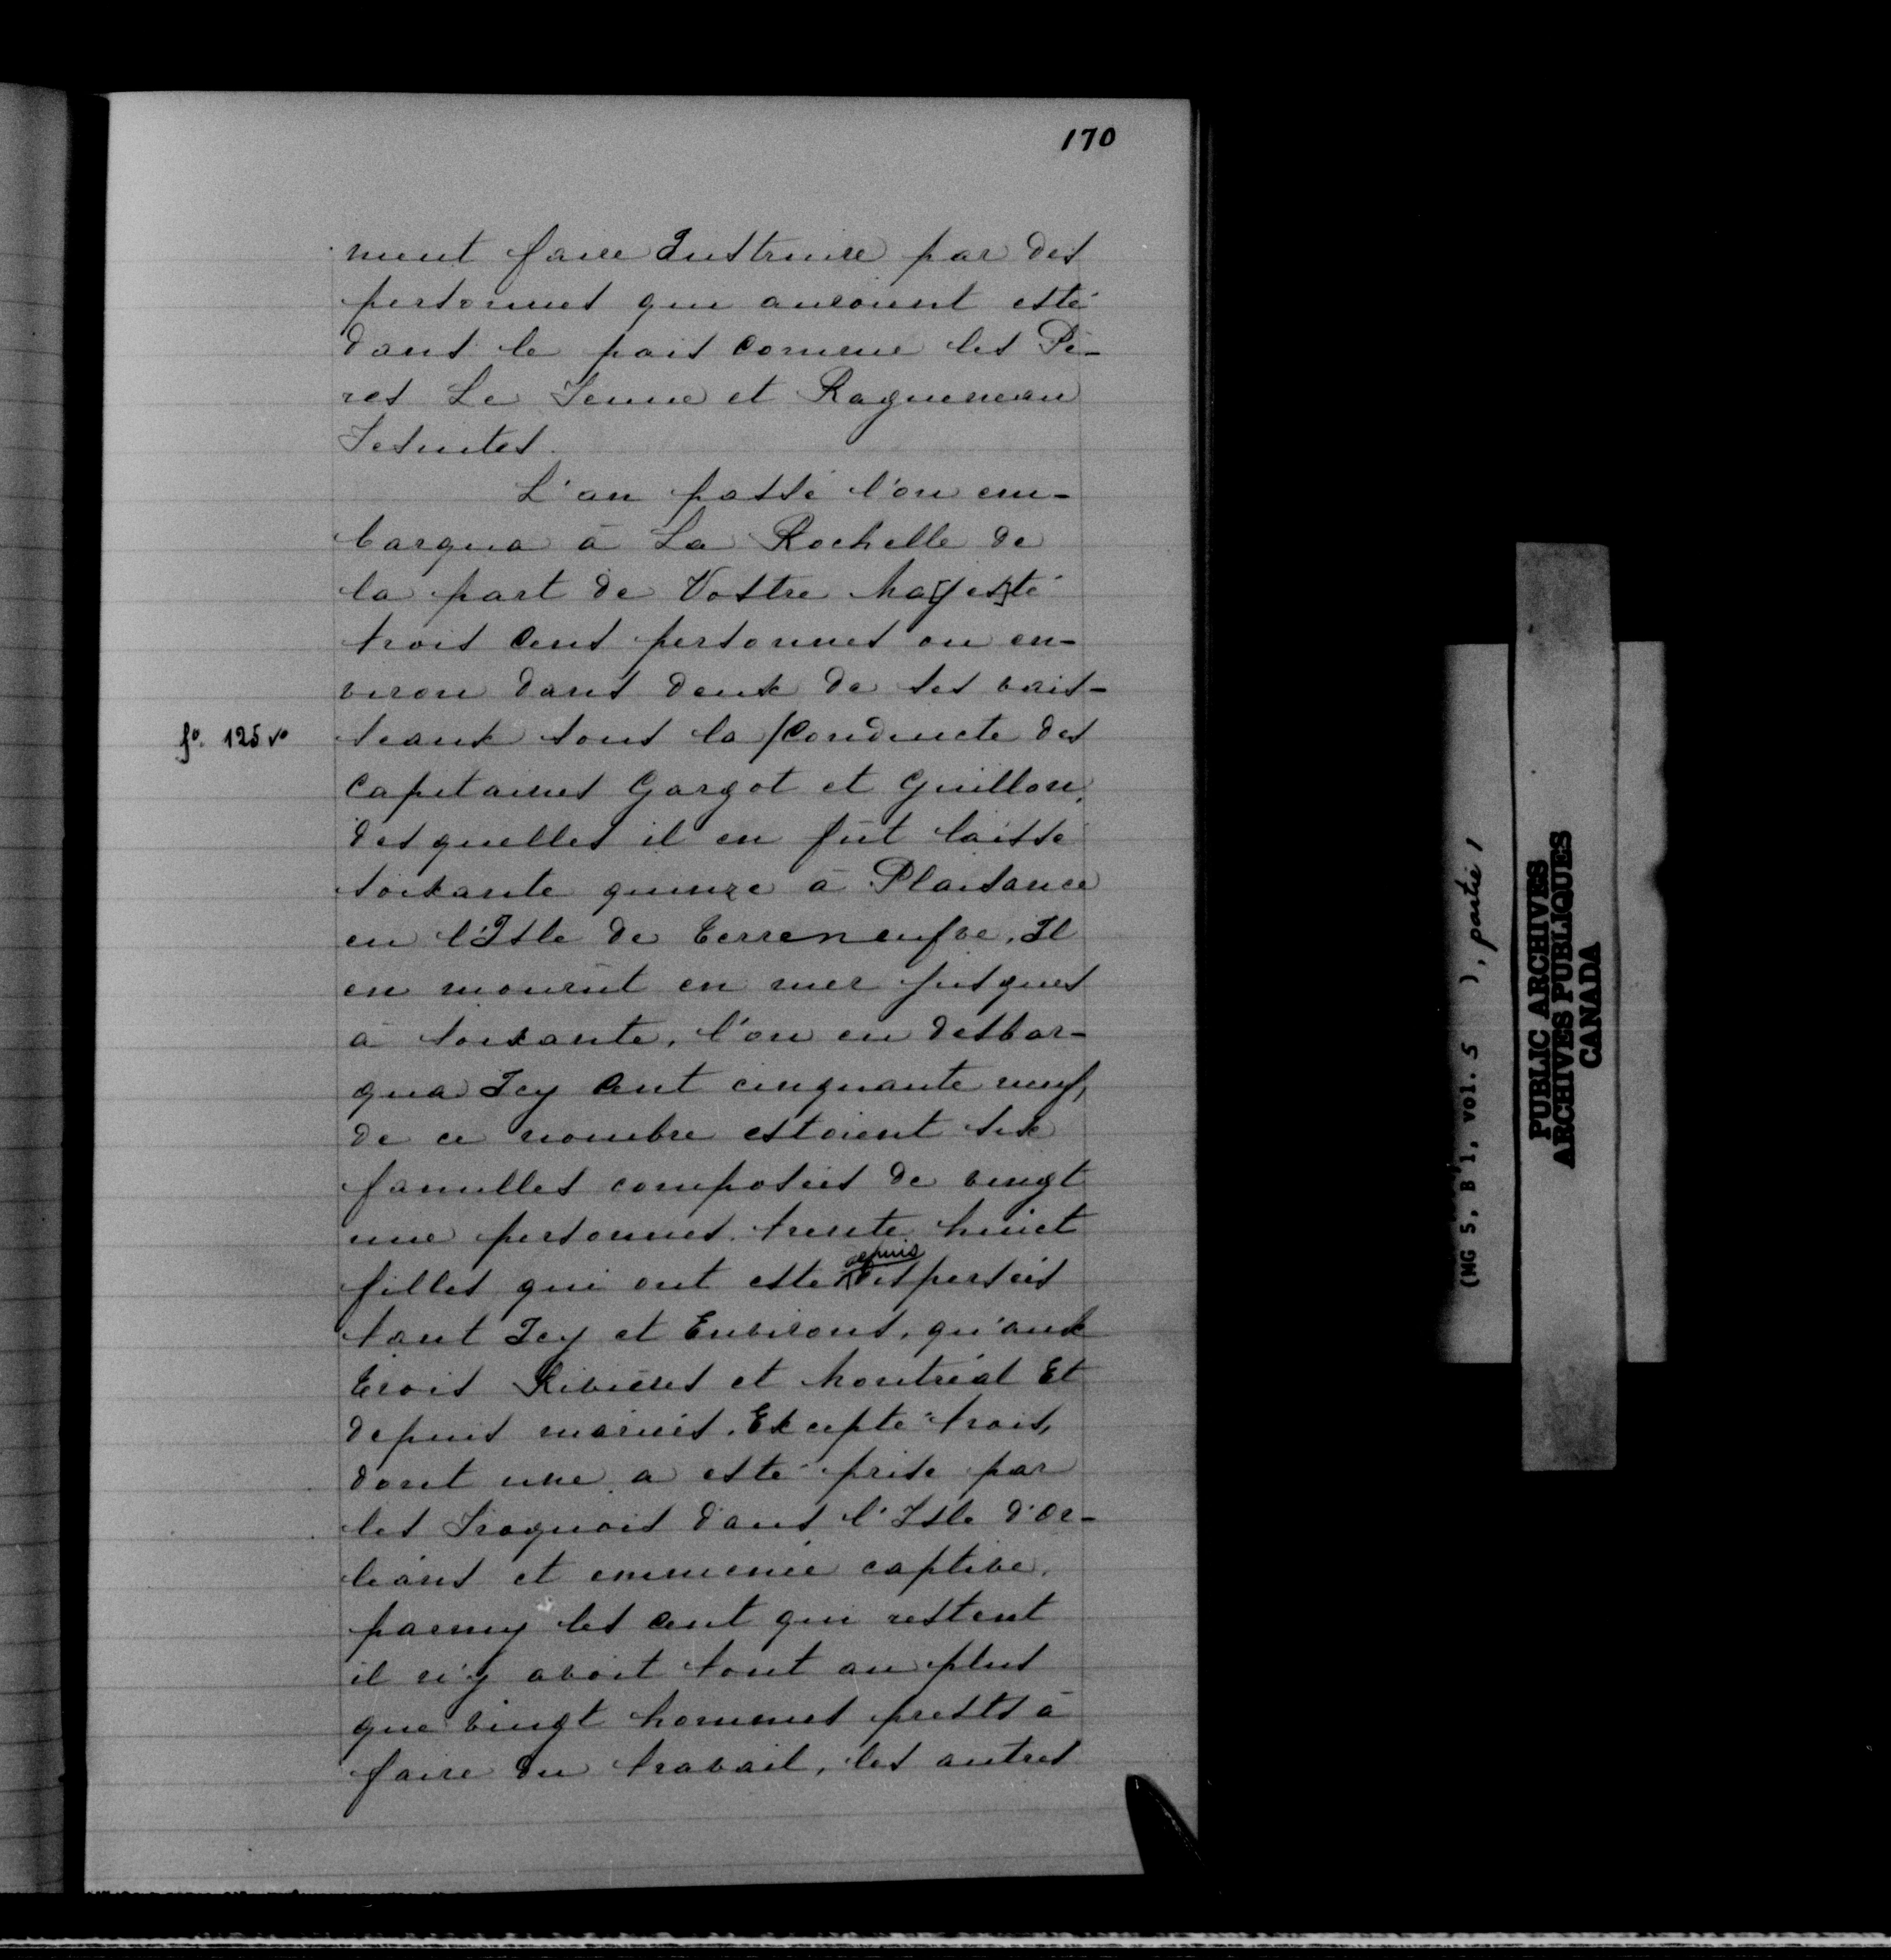 170
ment faire Instruire par des
personnes qui auroient esté
dans le pais comme les Pè-
res Le Jeune et Ragueneau
Jesuites.
L'an passé l'on em-
barqua à La Rochelle de
la part de Vostre Ma[jes]té
trois cens personnes ou en-
viron dans deux de ses vais-
f°. 125 v° seaux sous la /Conduicte des
Capitaines Gargot et Guillon,
desquelles il en fût laissé
soixante quinze à Plaisance
en l'Isle de Terreneufve, Il
en mourût en mer jusques
à soixante, l'on en desbar-
qua Icy Cent cinquante neuf,
de ce nombre estoient six
familles composées de vingt
une personnes. trente huict
depuis
filles qui ont esté disperseés
tant Icy et Environs, qu'aux
trois Rivières et Montréal Et
depuis mariés. Excepté trois,
dont une a esté prise par
les Iroquois dans l'Isle d'Or-
léans et emmenée captive.
parmy les Cent qui restent
il n'y avoit tout au plus
que vingt hommes prests à
faire du travail, les autres
(MG 5, B 1, vol. 5 ), partie 1
PUBLIC ARCHIVES
ARCHIVES PUBLIQUES
CANADA